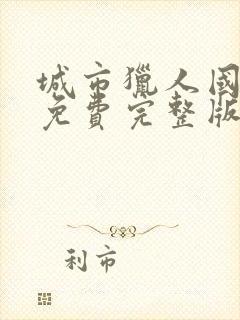 城市獵人國
免費完整版
利市